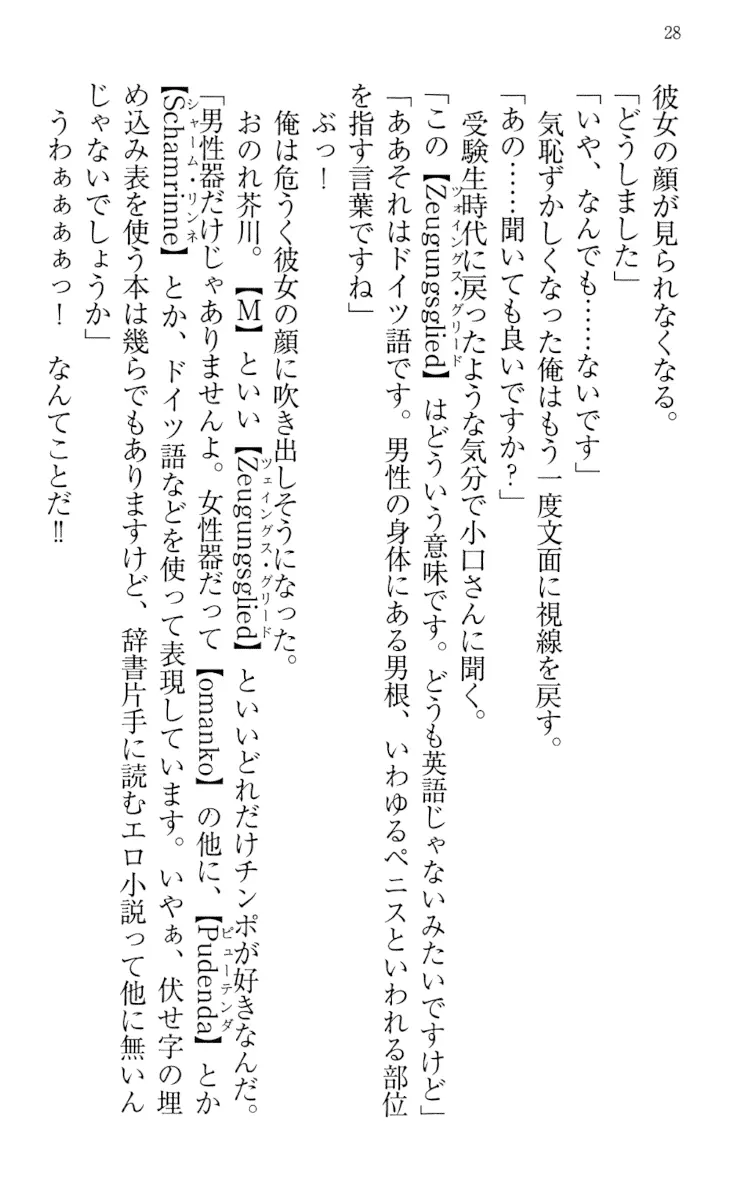 28
彼女の顔が見られなくなる。
「どうしました」
「いや、なんでも……ないです」
気恥ずかしくなった俺はもう一度文面に視線を戻す。
「あの……聞いても良いですか？」
受験生時代に戻ったような気分で小口さんに聞く。
「この【Zeugungsglied】はどういう意味です。どうも英語じゃないみたいですけど」
ツォイングス・グリード
「ああそれはドイツ語です。男性の身体にある男根、いわゆるペニスといわれる部位
を指す言葉ですね」
ぶっ！
俺は危うく彼女の顔に吹き出しそうになった。
おのれ芥川。【M】といい【Zeugungsglied】といいどれだけチンポが好きなんだ。
ツェイングス・グリード
「男性器だけじゃありませんよ。女性器だって【omanko】の他に、【Pudenda】とか
ピューテンダ
【Schamrinne】とか、ドイツ語などを使って表現しています。いやぁ、伏せ字の埋
シャーム・リンネ
め込み表を使う本は幾らでもありますけど、辞書片手に読むエロ小説って他に無いん
じゃないでしょうか」
うわぁぁぁぁっ！　なんてことだ‼